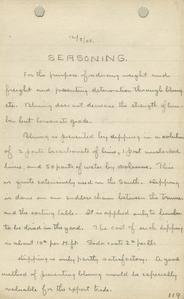 12/8/05.
SEASONING.
For the purpose of reducing weight and
freight and preventing deterioration through bluing
etc. Bluing does not decrease the strength of lum-
ber but lowers its grade.
Bluing is prevented by dipping in a solution
of 2 parts bicarbonate of lime, 1 part
lime, and 50 parts of water by volume. This
is quite extensively used in the South. Dipping
is done on an endless chain between the trimmer
and the sorting table. It is applied only to lumber
to be dried in the yard. The cost of such dipping
is about 10¢ per M. ft. Soda costs 2¢ per lb.
Dipping is only partly satisfactory. A good
method of preventing bluing would be especially
valuable for the export trade.
119